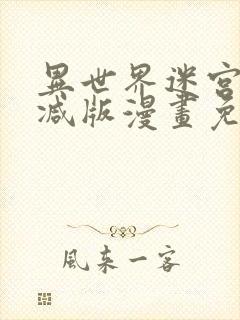 異世界迷宮
減版漫畫免
風來一客